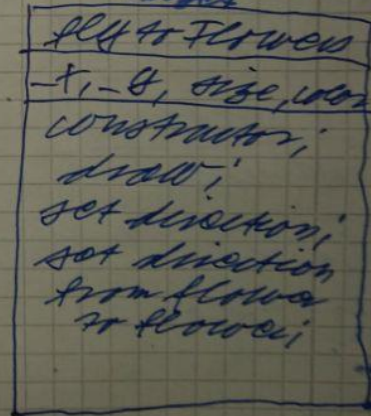 fly to Flowers
size, color
constructor;
draw;
set direction;
set direction
from flower
to flower;